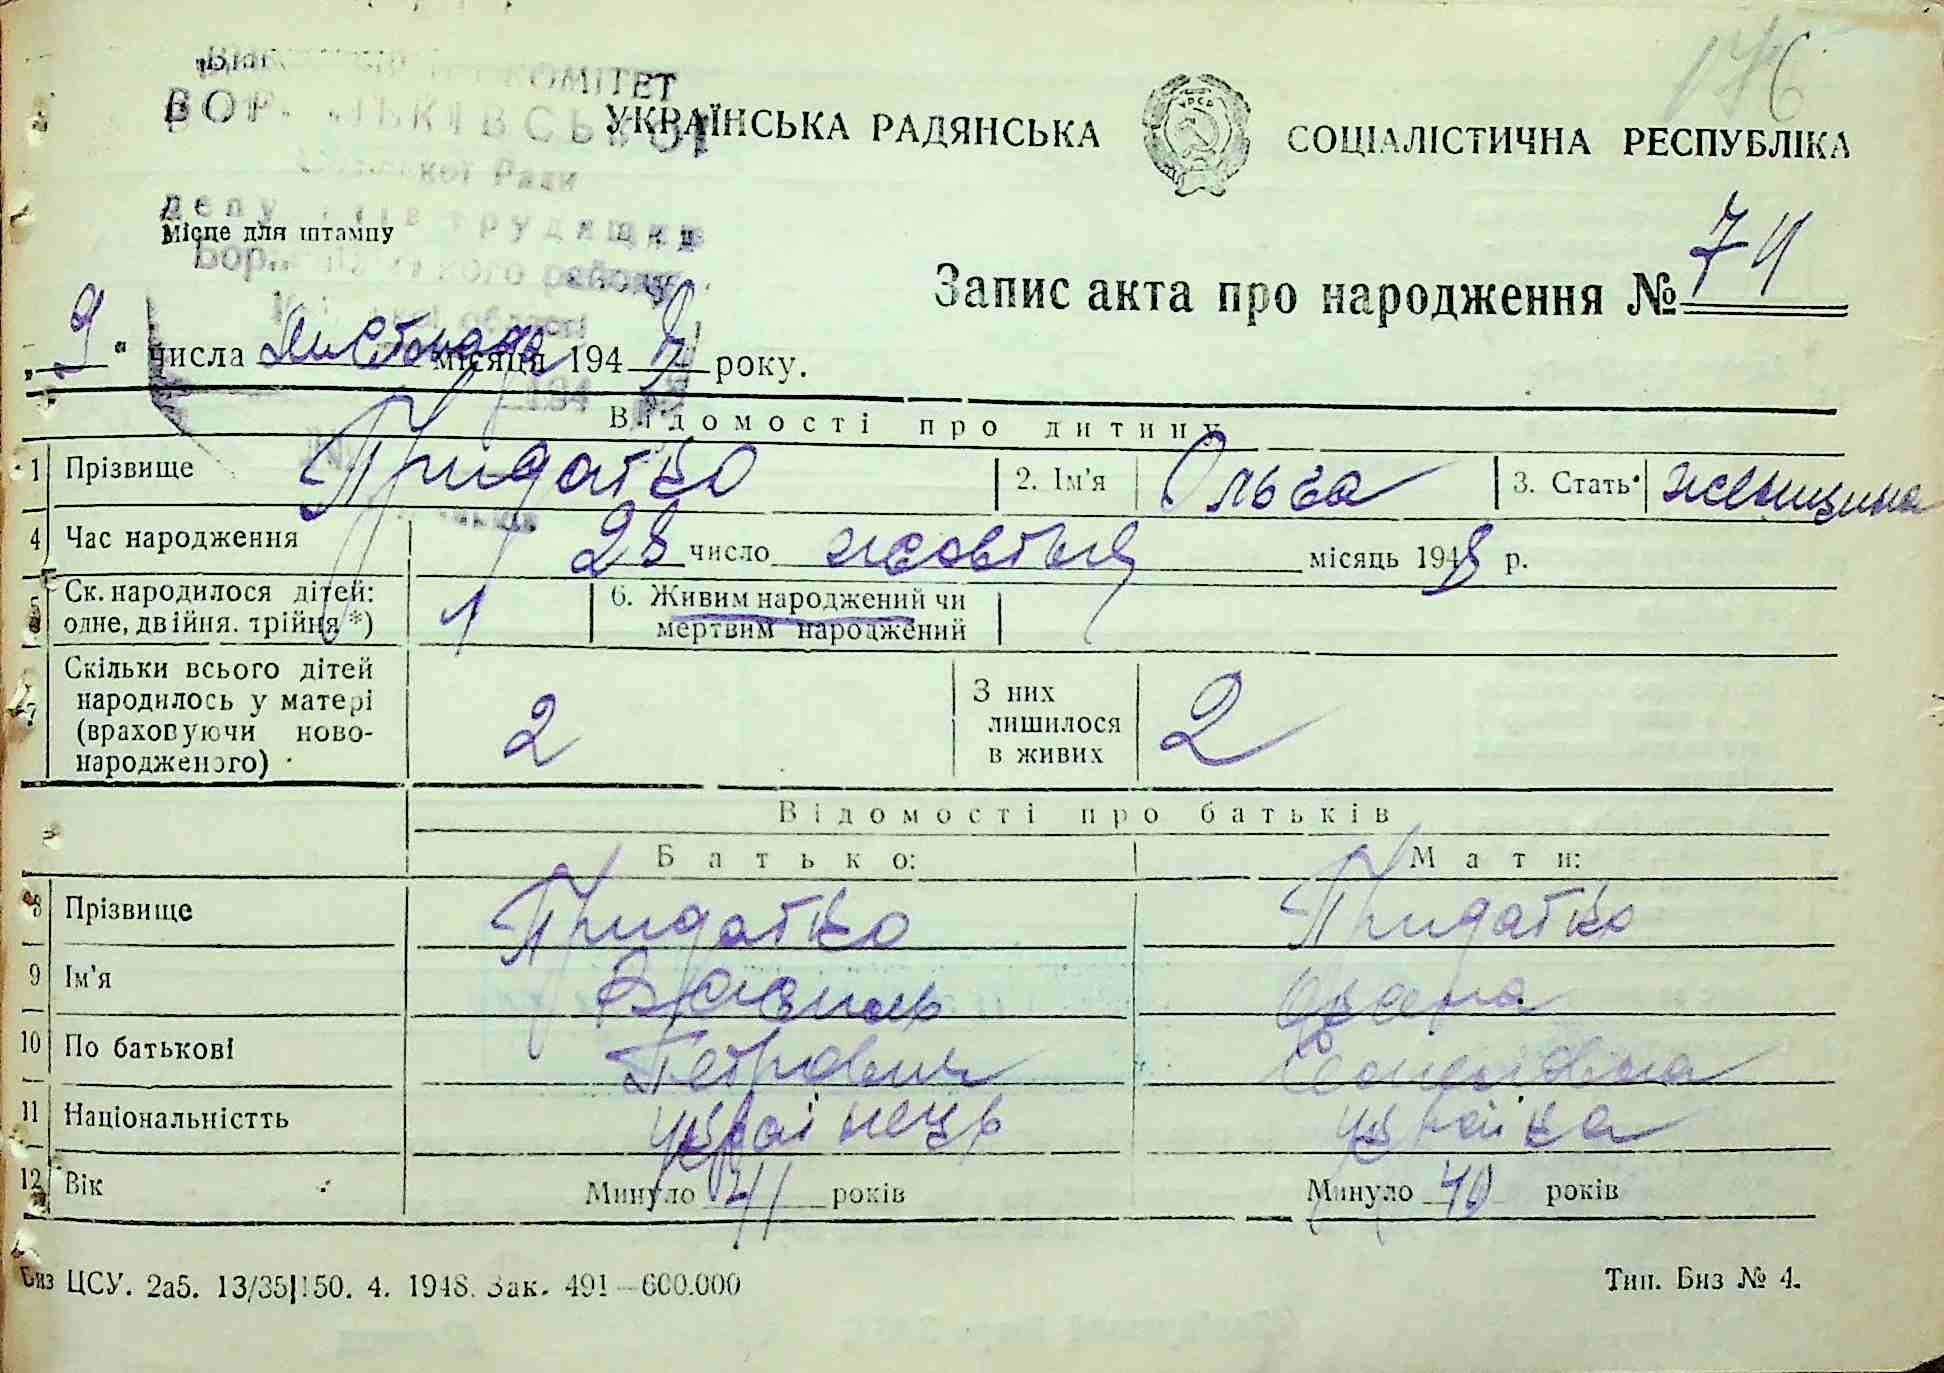 176
КОМІТЕТ
УКРАЇНСЬКА РАДЯНСЬКА СОЦІАЛІСТИЧНА РЕСПУБЛІКА
Ради
Місце для штампу
Запис акта про народження № 74
„9“ числа листопада місяця 194 року.
Відомості про дитину
1 Прізвище Придатко 2. Ім'я Ольга 3. Стать женщина
4 Час народження 28 число жовтня місяць 1948 р.
5 Ск. народилося дітей: одне, двійня, трійня *) 1 6. Живим народжений чи мертвим народжений
7 Скільки всього дітей народилось у матері (враховуючи ново-народженого) 2 З них лишилося в живих 2
Відомості про батьків
Батько: Мати:
8 Прізвище Придатко Придатко
9 Ім'я Василь
10 По батькові Петрович
11 Національністть українець українка
12 Вік Минуло 41 років Минуло 40 років
Биз ЦСУ. 2а5. 13/35|150. 4. 1948. Зак. 491—600.000 Тип. Биз № 4.